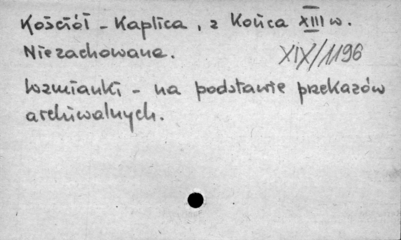 Kościół - Kaplica, z Końca XIII w.
Niezachowana.
XIX/1196
Wzmianki - na podstawie przekazów
archiwalnych.